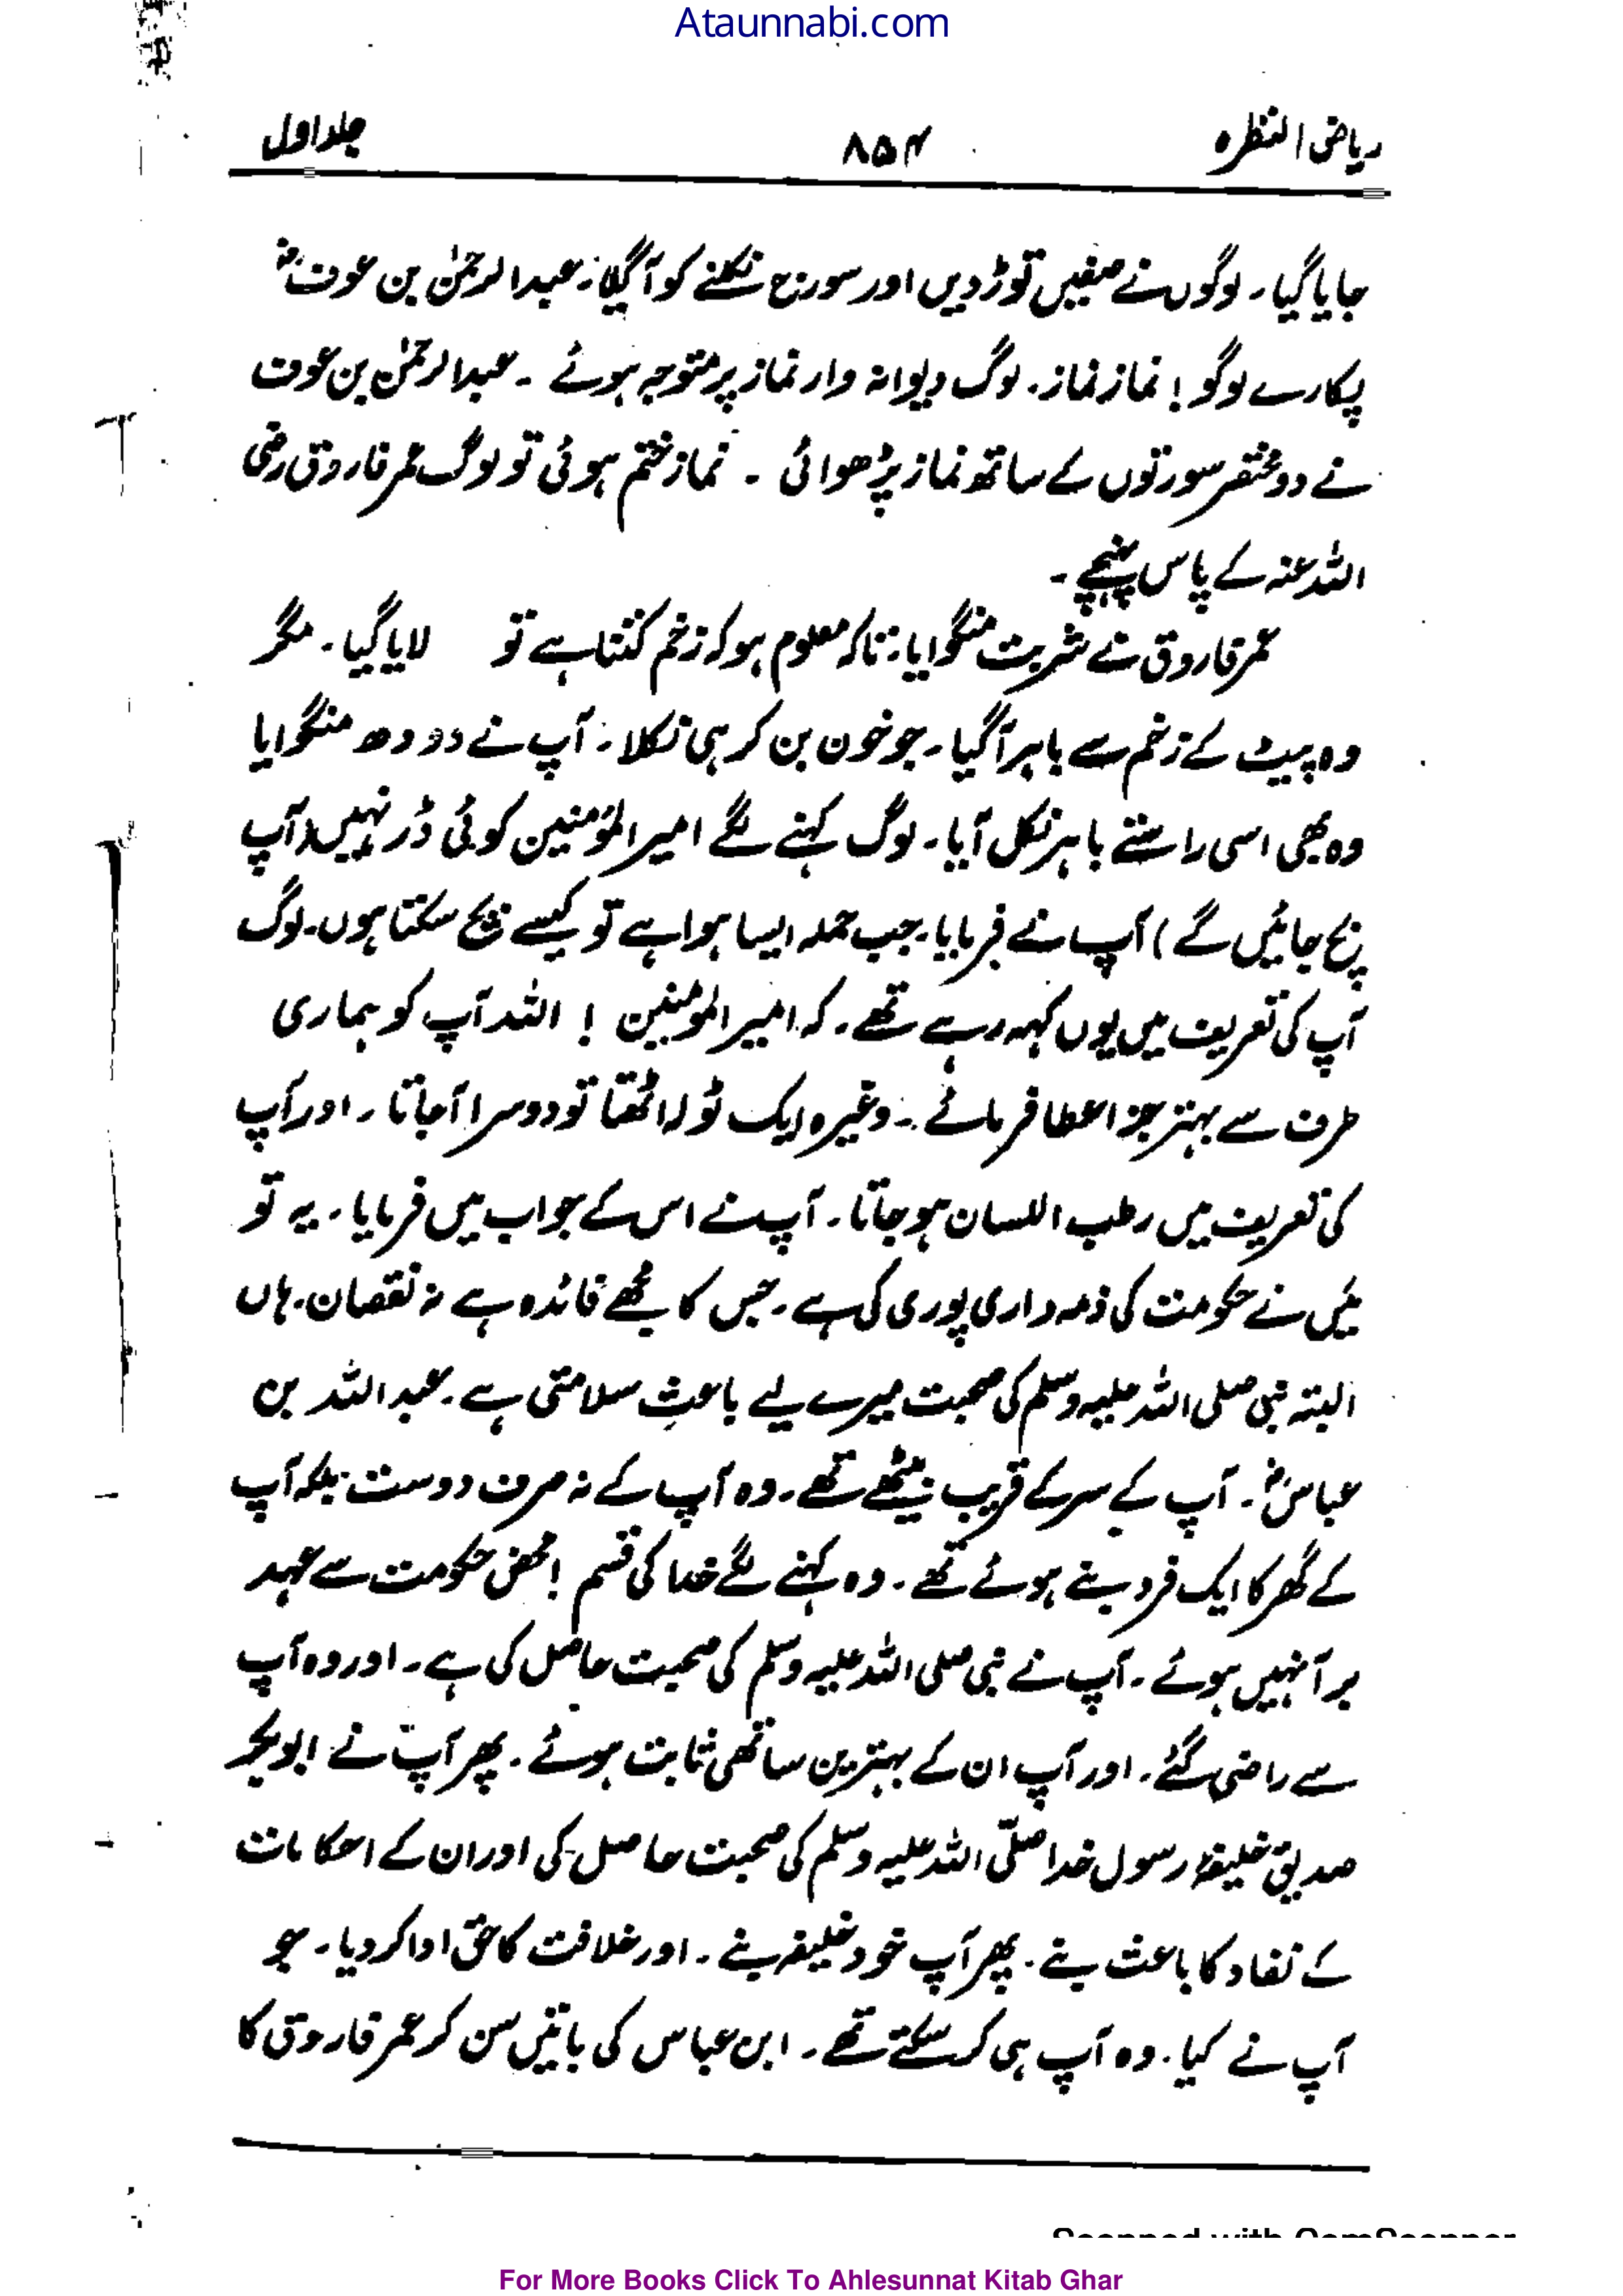 Ataunnabi.com
ریاض النظرہ ۸۵۴ جلد اول
جایا گیا۔ لوگوں نے صفیں توڑ دیں اور سورج نکلنے کو آ گیا۔ عبدالرحمٰن بن عوفؓ
پکارے لوگو! نماز نماز۔ لوگ دیوانہ وار نماز پر متوجہ ہوئے ۔ عبدالرحمٰن بن عوف
نے دو مختصر سورتوں کے ساتھ نماز پڑھوائی ۔ نماز ختم ہوئی تو لوگ عمر فاروق رضی
اللہ عنہ کے پاس پہنچے ۔
عمر فاروق نے شربت منگوایا: تاکہ معلوم ہو کہ زخم کتنا ہے تو لایا گیا۔ مگر
وہ پیٹ کے زخم سے باہر آ گیا۔ جو خون بن کر ہی نکلا۔ آپ نے دودھ منگوایا
وہ بھی اسی راستے باہر نکل آیا۔ لوگ کہنے لگے امیرالمؤمنین کوئی ڈر نہیں (آپ
بچ جائیں گے) آپ نے فرمایا۔ جب حملہ ایسا ہوا ہے تو کیسے بچ سکتا ہوں۔ لوگ
آپ کی تعریف میں یوں کہہ رہے تھے۔ کہ امیرالمومنین ! اللہ آپ کو ہماری
طرف سے بہتر جزا عطا فرمائے ۔ وغیرہ ایک ٹولہ اٹھتا تو دوسرا آ جاتا۔ اور آپ
کی تعریف میں رطب اللسان ہو جاتا۔ آپ نے اس کے جواب میں فرمایا۔ یہ تو
میں نے حکومت کی ذمہ داری پوری کی ہے۔ جس کا مجھے فائدہ ہے نہ نقصان۔ ہاں
البتہ نبی صلی اللہ علیہ وسلم کی صحبت میرے لیے باعثِ سلامتی ہے۔ عبداللہ بن
عباسؓ۔ آپ کے سر کے قریب بیٹھے تھے۔ وہ آپ کے نہ صرف دوست بلکہ آپ
کے گھر کا ایک فرد بنے ہوئے تھے۔ وہ کہنے لگے خدا کی قسم! محض حکومت سے عہد
برآ نہیں ہوئے۔ آپ نے نبی صلی اللہ علیہ وسلم کی صحبت حاصل کی ہے۔ اور وہ آپ
سے راضی گئے۔ اور آپ ان کے بہترین ساتھی ثابت ہوئے۔ پھر آپ نے ابوبکر
صدیق خلیفۂ رسول خدا صلّی اللہ علیہ وسلم کی صحبت حاصل کی اور ان کے احکامات
کے نفاد کا باعث بنے۔ پھر آپ خود خلیفہ بنے۔ اور خلافت کا حق ادا کر دیا۔ جو
آپ نے کیا۔ وہ آپ ہی کر سکتے تھے۔ ابن عباس کی باتیں سن کر عمر فاروق کا
For More Books Click To Ahlesunnat Kitab Ghar